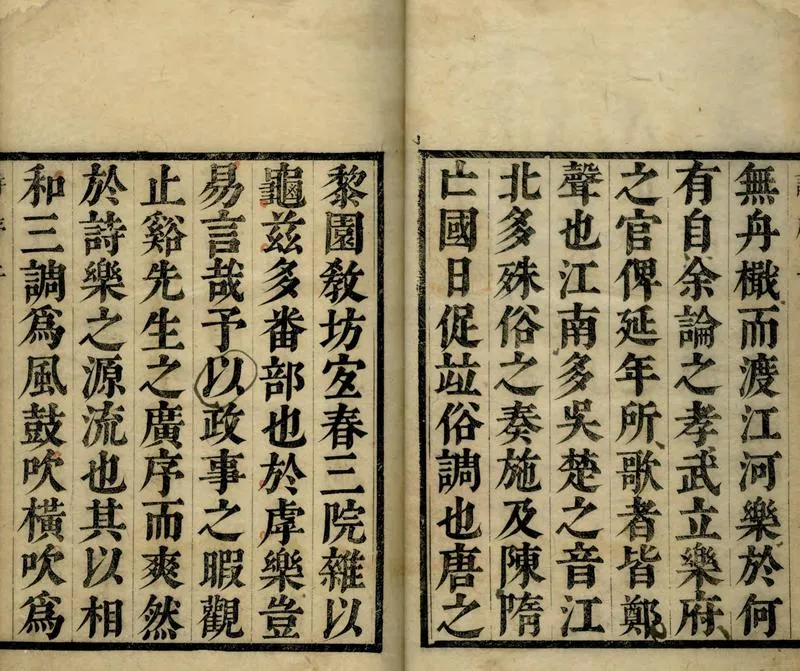 無舟檝而渡江河樂於何
有自余論之孝武立樂府
之官俾延年所歌者皆鄭
聲也江南多吳楚之音江
北多殊俗之奏施及陳隋
亡國日促竝俗調也唐之
黎園敎坊宐春三院雜以
龜茲多番部也於虖樂豈
易言哉予以政事之暇觀
止谿先生之廣序而爽然
於詩樂之源流也其以相
和三調爲風鼓吹橫吹爲